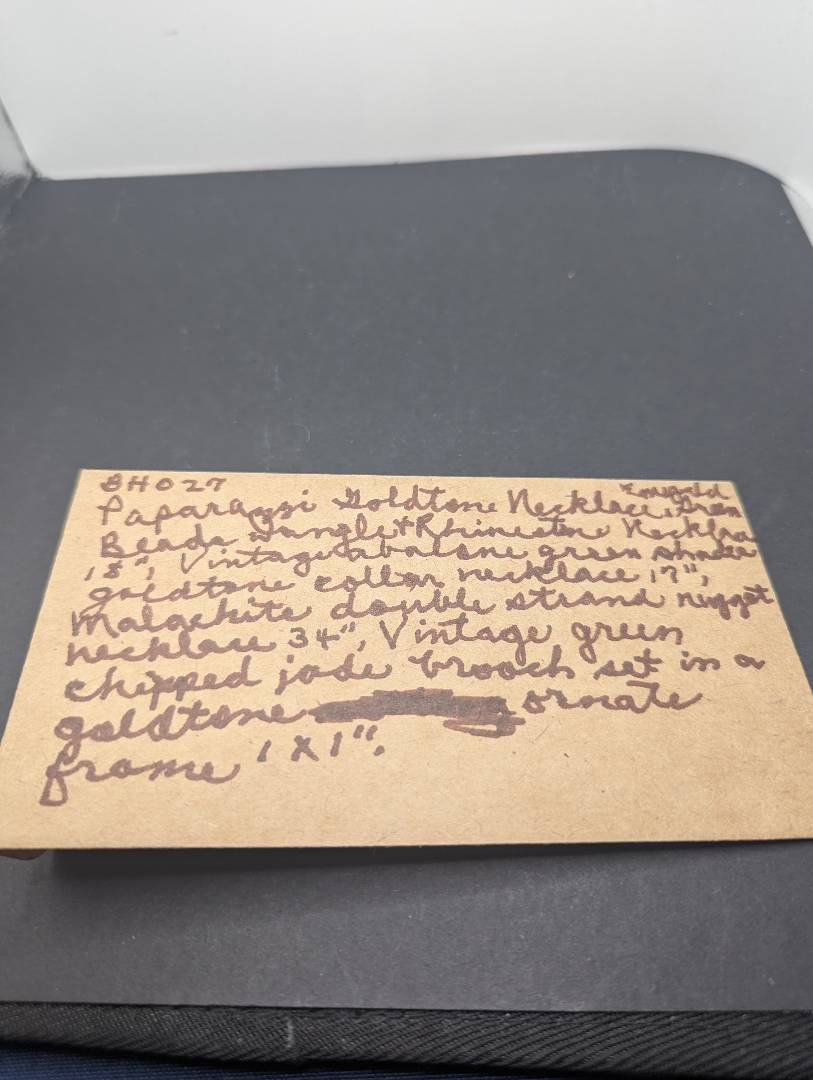 BH027
Paparazzi Goldtone Necklace, Emerald Green
Beads Dangle + Rhinestone Neckla
18", Vintage abalone green shades
goldtone collar necklace 17",
Malachite double strand nugget
necklace 34", Vintage green
chipped jade brooch set in a
goldtone ornate
frame 1 x 1".